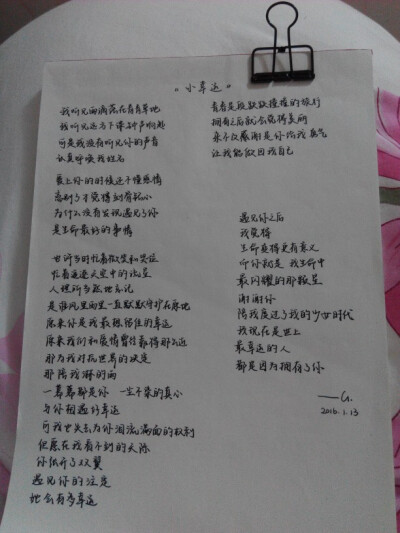 《小幸运》
我听见雨滴落在青青草地
我听见远方下课钟声响起
可是我没有听见你的声音
认真呼唤我姓名
爱上你的时候还不懂感情
离别了才觉得刻骨铭心
为什么没有发现遇见了你
是生命最好的事情
也许当时忙着微笑和哭泣
忙着追逐天空中的流星
人理所当然地忘记
是谁风里雨里一直默默守护在原地
原来你是我最想留住的幸运
原来我们和爱情曾经靠得那么近
那为我对抗世界的决定
那陪我淋的雨
一幕幕都是你 一尘不染的真心
与你相遇好幸运
可我也失去为你泪流满面的权利
但愿在我看不到的天际
你张开了双翼
遇见你的注定
她会有多幸运
青春是段跌跌撞撞的旅行
拥有之后就会觉得美丽
来不及感谢是你给我勇气
让我能做回我自己
遇见你之后
我觉得
生命变得更有意义
所以你就是我生命中
最闪耀的那颗星
谢谢你
陪我度过了我的少女时代
我现在是世上
最幸运的人
都是因为拥有了你
——G.
2016.1.13